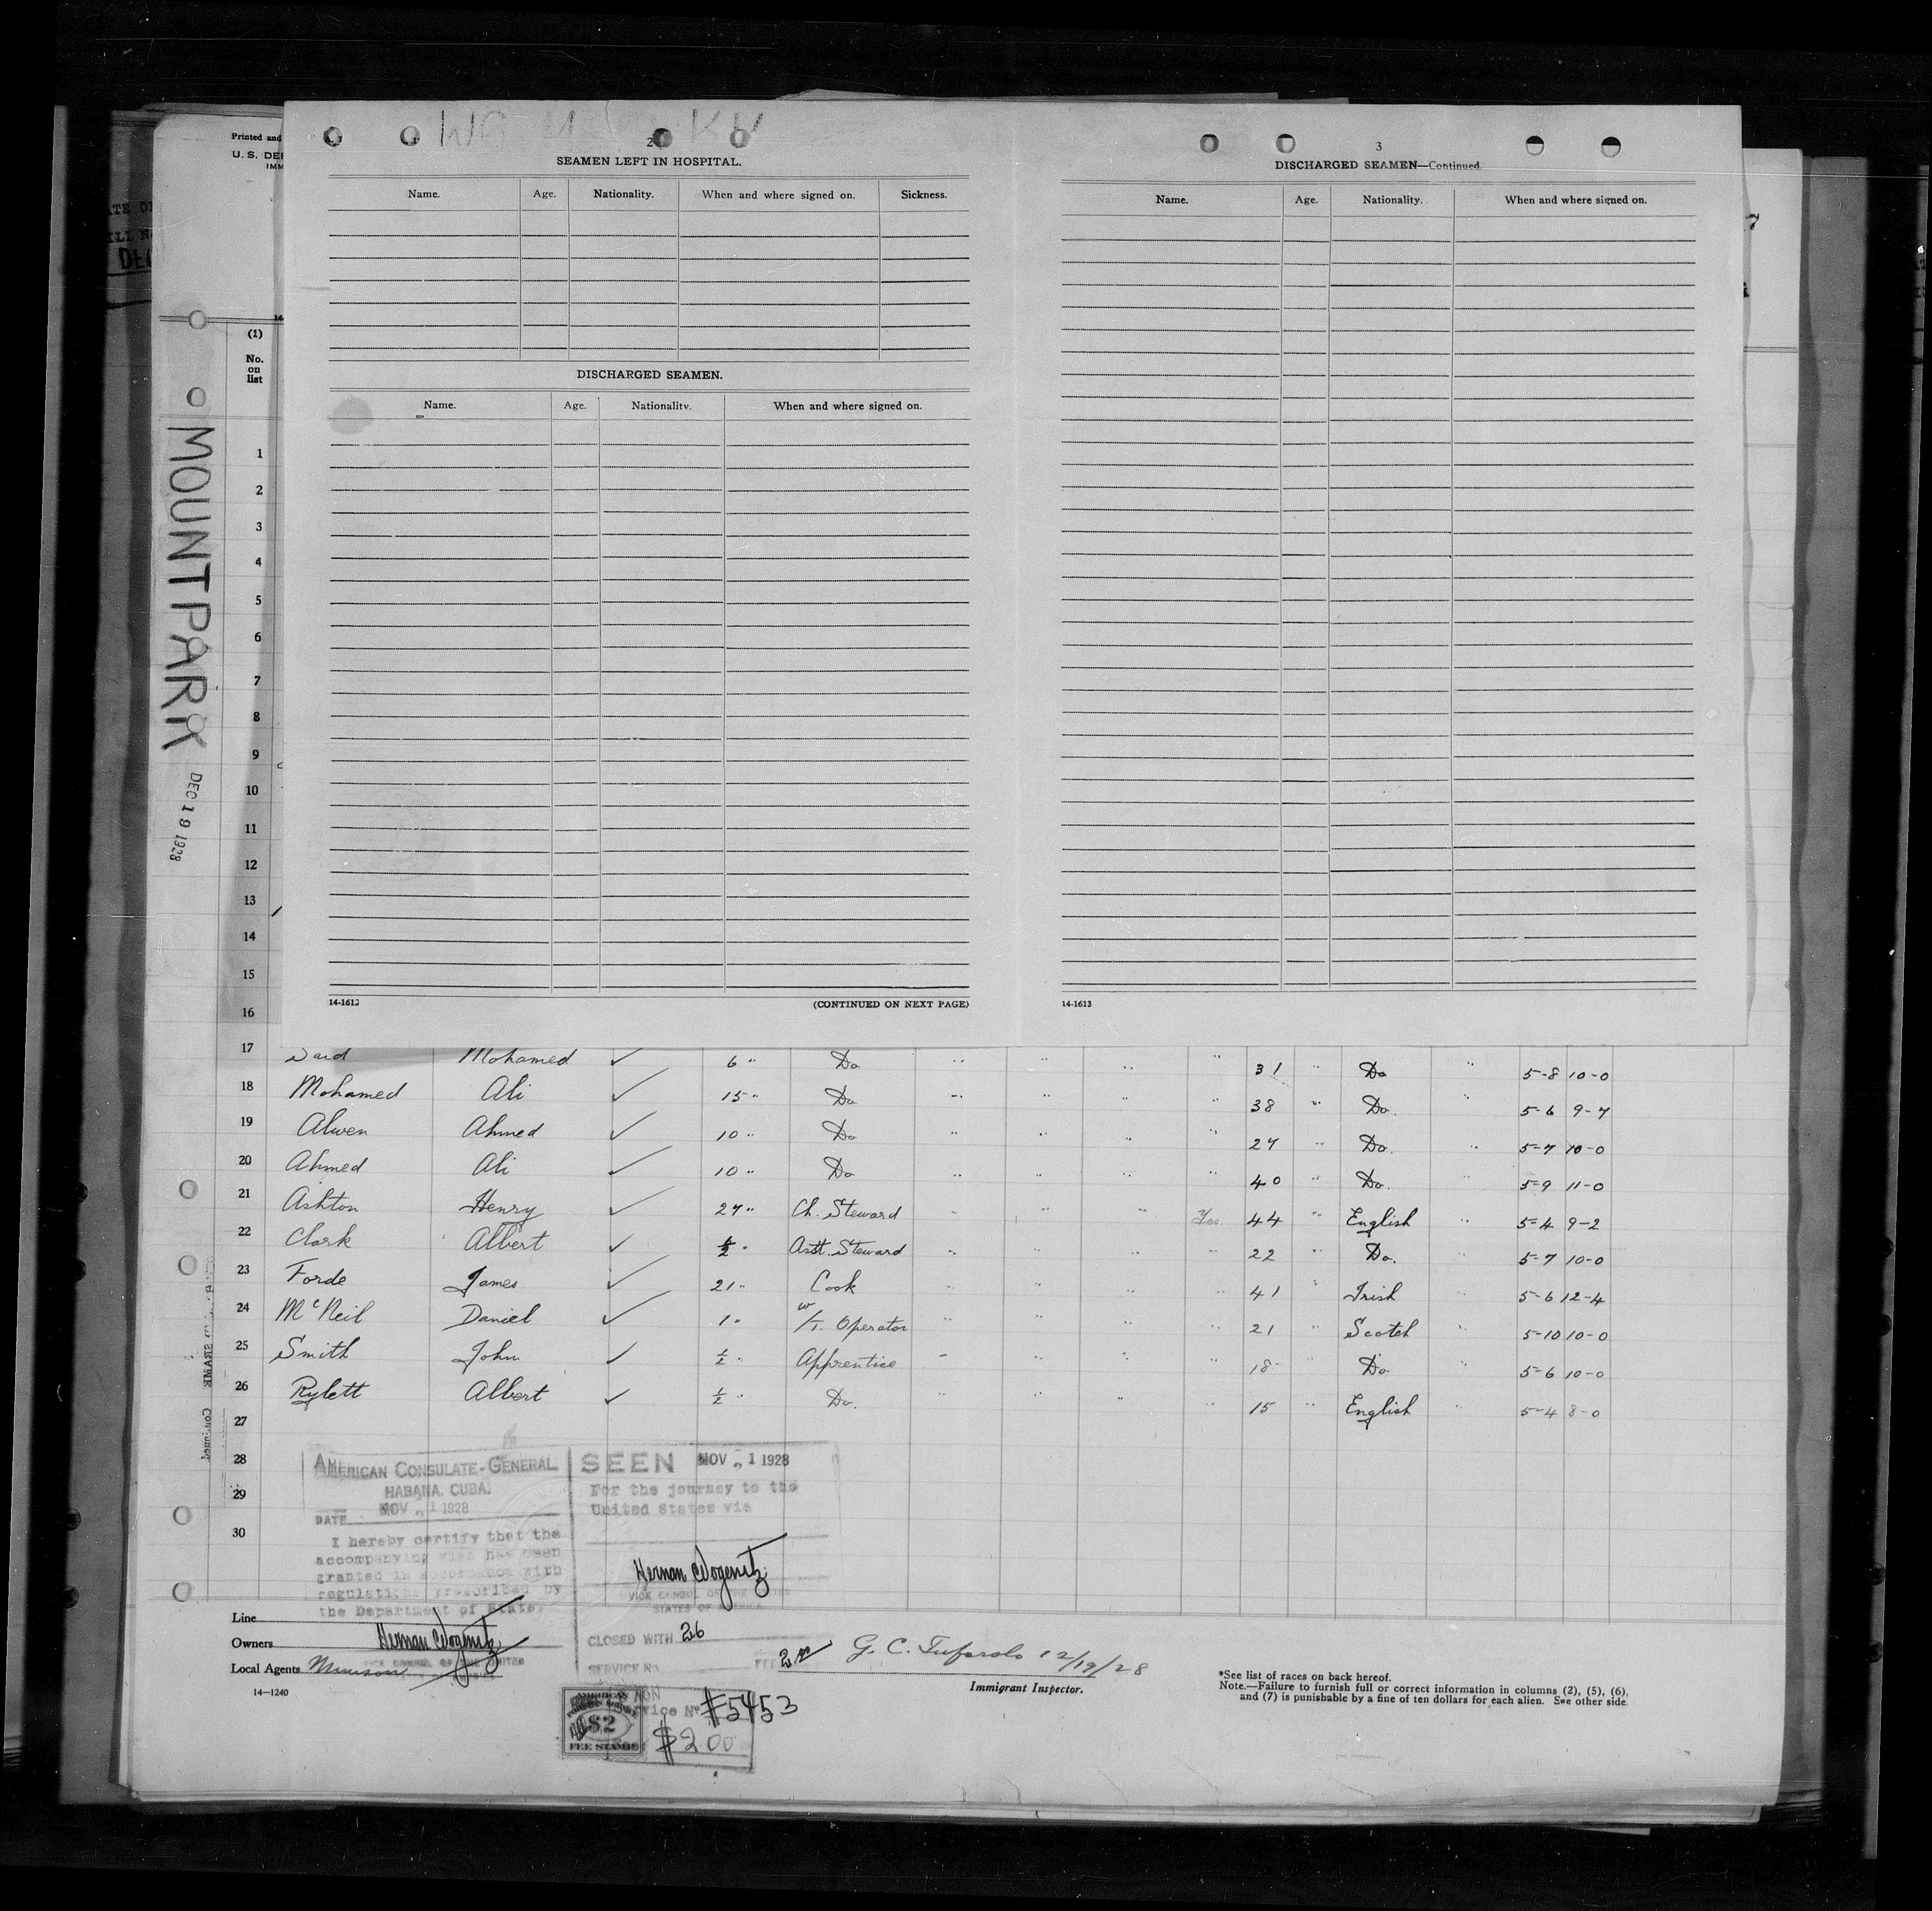 2
SEAMEN LEFT IN HOSPITAL.
Name. Age. Nationality. When and where signed on. Sickness.
DISCHARGED SEAMEN.
Name. Age. Nationality. When and where signed on.
14-1613 (CONTINUED ON NEXT PAGE)
3
DISCHARGED SEAMEN—Continued.
Name. Age. Nationality. When and where signed on.
14-1613
Printed and
U. S. DE
IMM
(1)
No.
on
list
MOUNTPARK
DEC 19 1928
1
2
3
4
5
6
7
8
9
10
11
12
13
14
15
16
17 Said Mohamed ✓ 6 " Do " " " " 31 " Do " 5-8 10-0
18 Mohamed Ali ✓ 15 " Do " " " " 38 " Do. " 5-6 9-7
19 Alwen Ahmed ✓ 10 " Do " " " " 27 " Do. " 5-7 10-0
20 Ahmed Ali ✓ 10 " Do " " " " 40 " Do. " 5-9 11-0
21 Ashton Henry ✓ 27 " Ch. Steward " " " Yes 44 " English " 5-4 9-2
22 Clark Albert ✓ ½ " Asst. Steward " " " " 22 " Do. " 5-7 10-0
23 Forde James ✓ 21 " Cook " " " " 41 " Irish " 5-6 12-4
24 McNeil Daniel ✓ 1 " W/T. Operator " " " " 21 " Scotch " 5-10 10-0
25 Smith John ✓ ½ " Apprentice " " " " 18 " Do " 5-6 10-0
26 Rylett Albert ✓ ½ " Do. " " " " 15 " English " 5-4 8-0
27
28
29
30
AMERICAN CONSULATE-GENERAL
HABANA, CUBA.
NOV 21 1928
DATE
I hereby certify that the
accompanying visa has been
granted in accordance with
regulations prescribed by
the Department of State.
SEEN NOV 21 1928
For the journey to the
United States via
VICE CONSUL OF THE UNITED
STATES OF AMERICA
CLOSED WITH 26
SERVICE No.
Line
Owners
Local Agents Munson
14—1240
Service No #5453
$2.00
$2
FEE STAMP
12/19/28
Immigrant Inspector.
*See list of races on back hereof.
Note.—Failure to furnish full or correct information in columns (2), (5), (6),
and (7) is punishable by a fine of ten dollars for each alien. See other side.